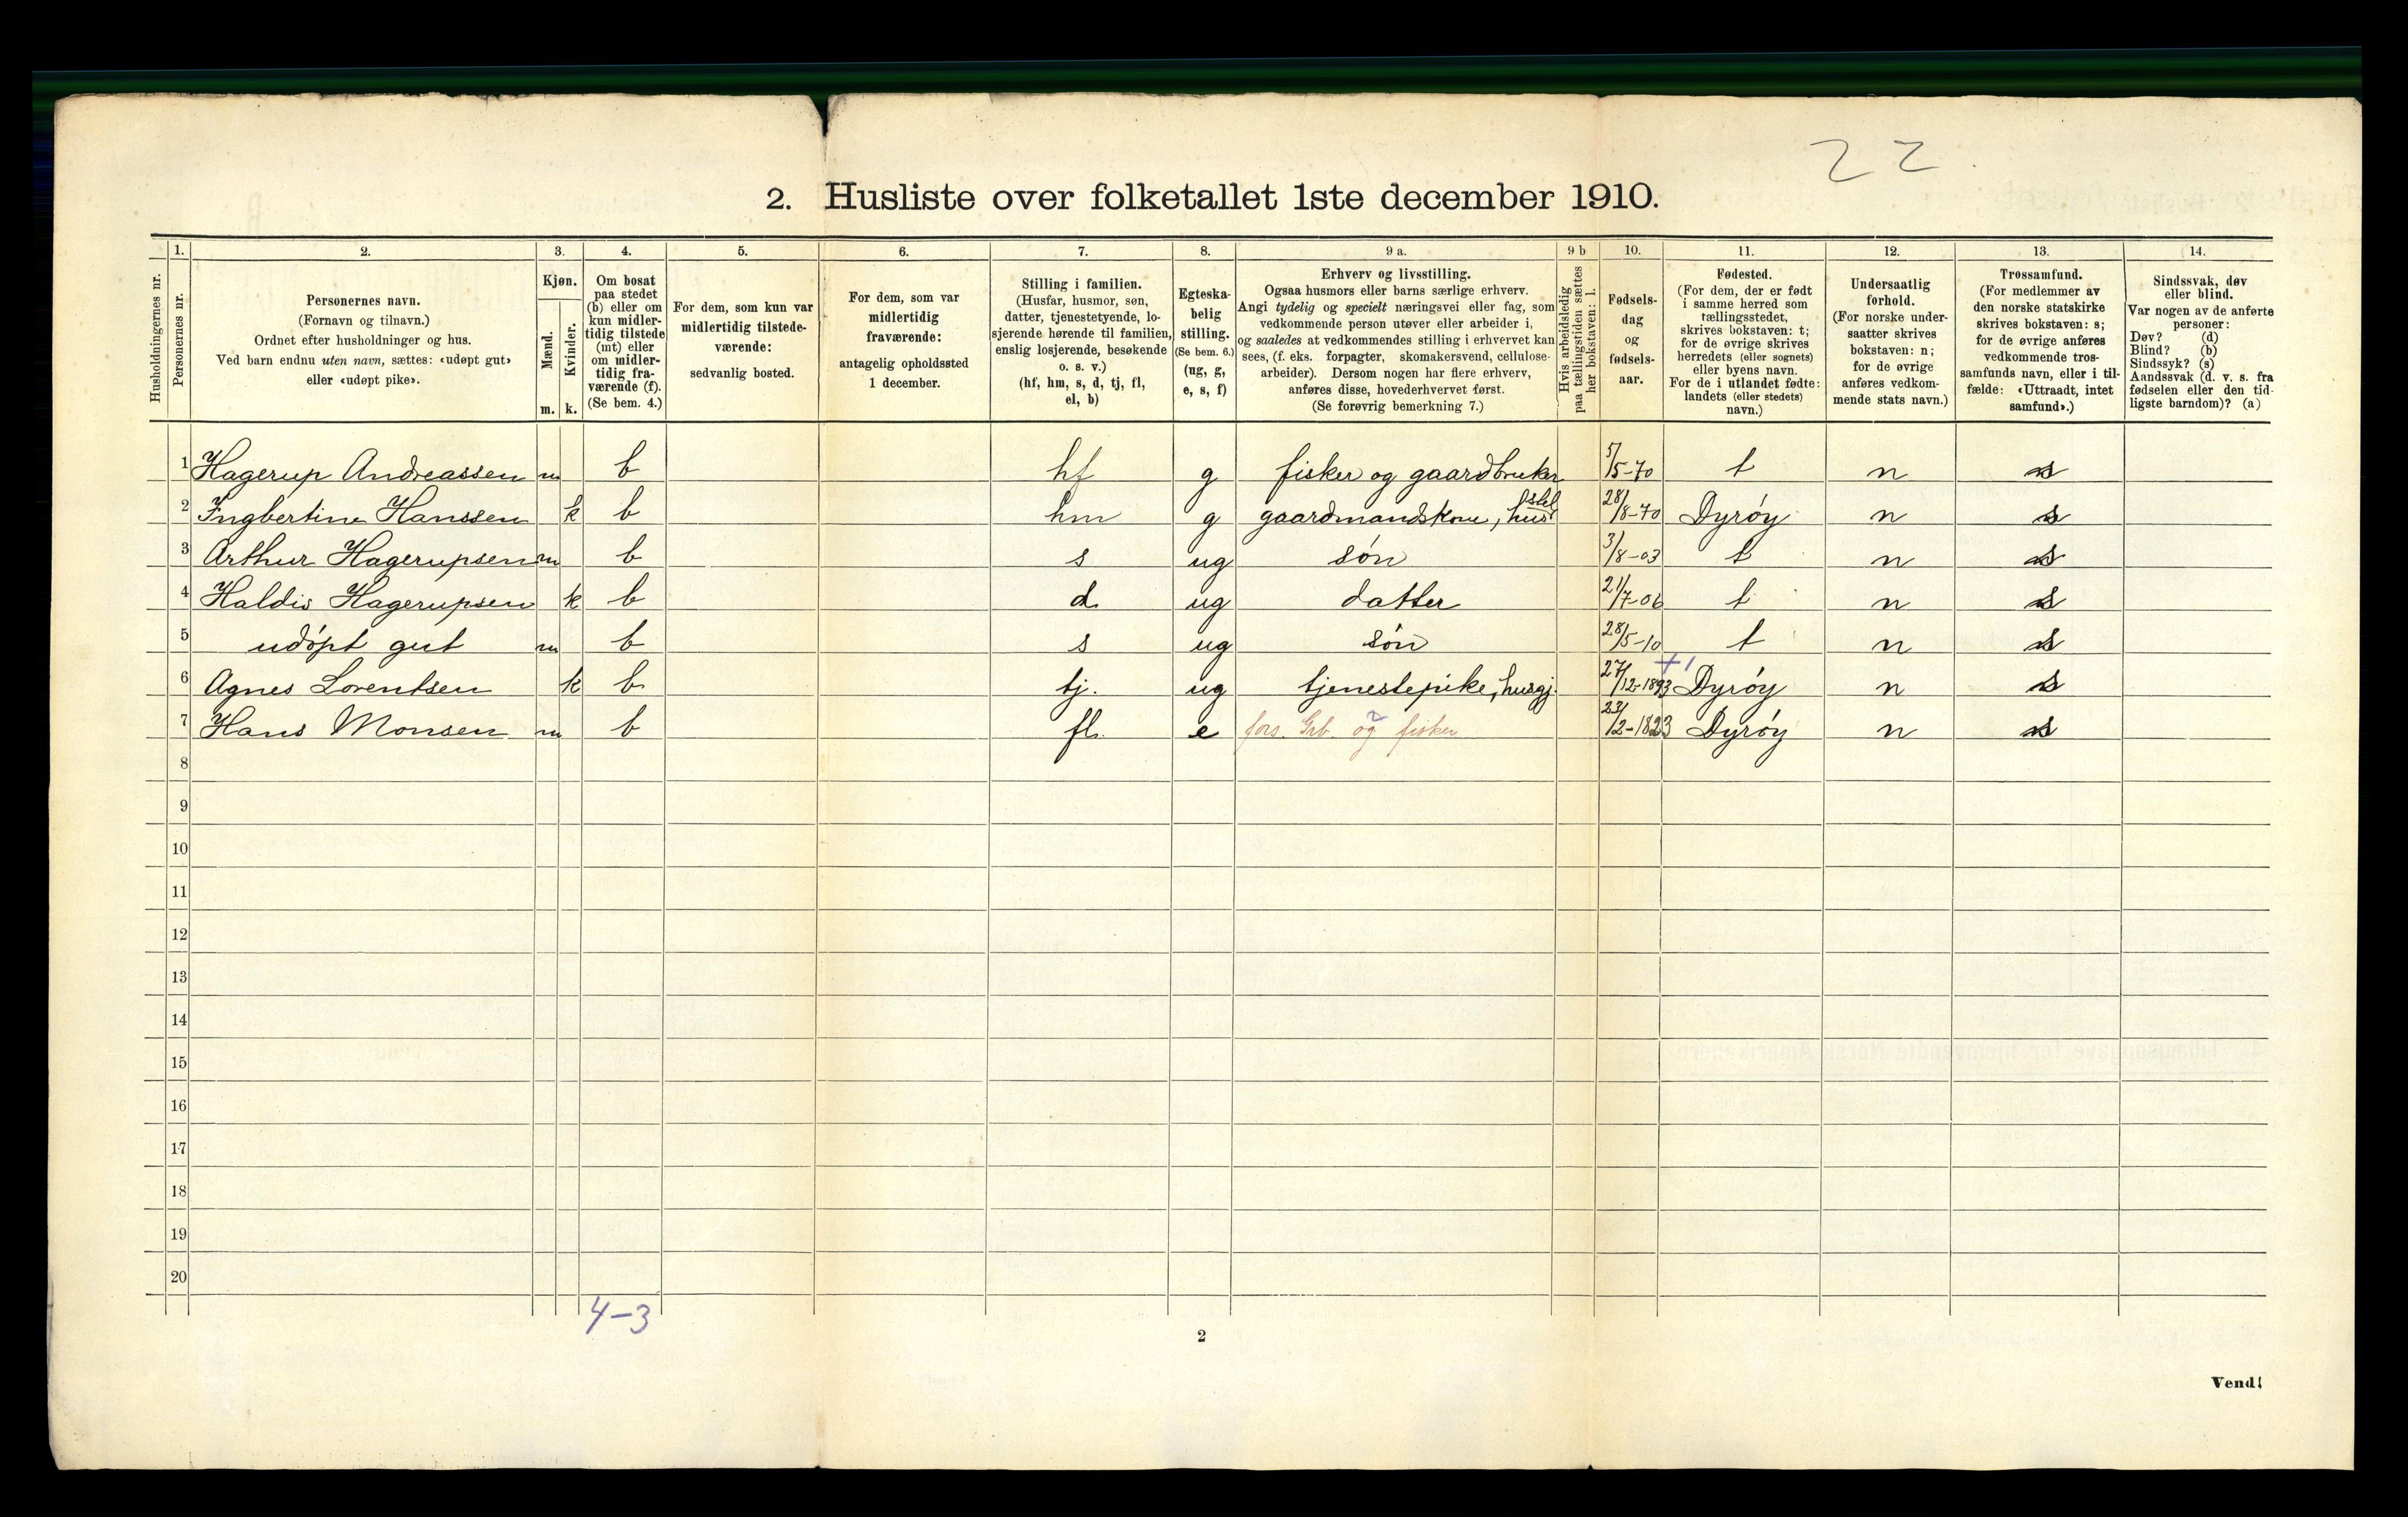 22
2. Husliste over folketallet 1ste december 1910.
Husholdningernes nr.
1.
Personernes nr.
2.
Personernes navn.
(Fornavn og tilnavn.)
Ordnet efter husholdninger og hus.
Ved barn endnu uten navn, sættes: «udøpt gut»
eller «udøpt pike».
3.
Kjøn.
Mænd.
Kvinder.
m. k.
4.
Om bosat
paa stedet
(b) eller om
kun midler-
tidig tilstede
(mt) eller
om midler-
tidig fra-
værende (f).
(Se bem. 4.)
5.
For dem, som kun var
midlertidig tilstede-
værende:
sedvanlig bosted.
6.
For dem, som var
midlertidig
fraværende:
antagelig opholdssted
1 december.
7.
Stilling i familien.
(Husfar, husmor, søn,
datter, tjenestetyende, lo-
sjerende hørende til familien,
enslig losjerende, besøkende
o. s. v.)
(hf, hm, s, d, tj, fl,
el, b)
8.
Egteska-
belig
stilling.
(Se bem. 6.)
(ug, g,
e, s, f)
9 a.
Erhverv og livsstilling.
Ogsaa husmors eller barns særlige erhverv.
Angi tydelig og specielt næringsvei eller fag, som
vedkommende person utøver eller arbeider i,
og saaledes at vedkommendes stilling i erhvervet kan
sees, (f. eks. forpagter, skomakersvend, cellulose-
arbeider). Dersom nogen har flere erhverv,
anføres disse, hovederhvervet først.
(Se forøvrig bemerkning 7.)
9 b
Hvis arbeidsledig
paa tællingstiden sættes
her bokstaven: l.
10.
Fødsels-
dag
og
fødsels-
aar.
11.
Fødested.
(For dem, der er født
i samme herred som
tællingsstedet,
skrives bokstaven: t;
for de øvrige skrives
herredets (eller sognets)
eller byens navn.
For de i utlandet fødte:
landets (eller stedets)
navn.)
12.
Undersaatlig
forhold.
(For norske under-
saatter skrives
bokstaven: n;
for de øvrige
anføres vedkom-
mende stats navn.)
13.
Trossamfund.
(For medlemmer av
den norske statskirke
skrives bokstaven: s;
for de øvrige anføres
vedkommende tros-
samfunds navn, eller i til-
fælde: «Uttraadt, intet
samfund».)
14.
Sindssvak, døv
eller blind.
Var nogen av de anførte
personer:
Døv? (d)
Blind? (b)
Sindssyk? (s)
Aandssvak (d. v. s. fra
fødselen eller den tid-
ligste barndom)? (a)
1 Hagerup Andreassen m b hf g fisker og gaardbruker 5/5-70 t n s
2 Ingbertine Hanssen k b hm g gaardmandskone, husstel 28/8-70 Dyrøy n s
3 Arthur Hagerupsen m b s ug søn 3/8-03 t n s
4 Haldis Hagerupsen k b d ug datter 21/7-06 t n s
5 udøpt gut m b s ug søn 28/5-10 t n s
6 Agnes Lorentsen k b tj. ug tjenestepike, husgj. 27/12-1893 Dyrøy n s
7 Hans Monsen m b fl. e fors. Grb. og fisker 23/2-1823 Dyrøy n s
8
9
10
11
12
13
14
15
16
17
18
19
20
4-3
2
Vend!